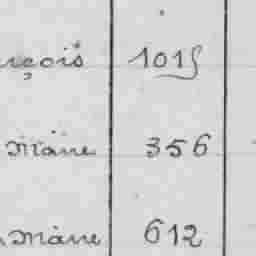 rçois 1015
Maire 356
Maire 612